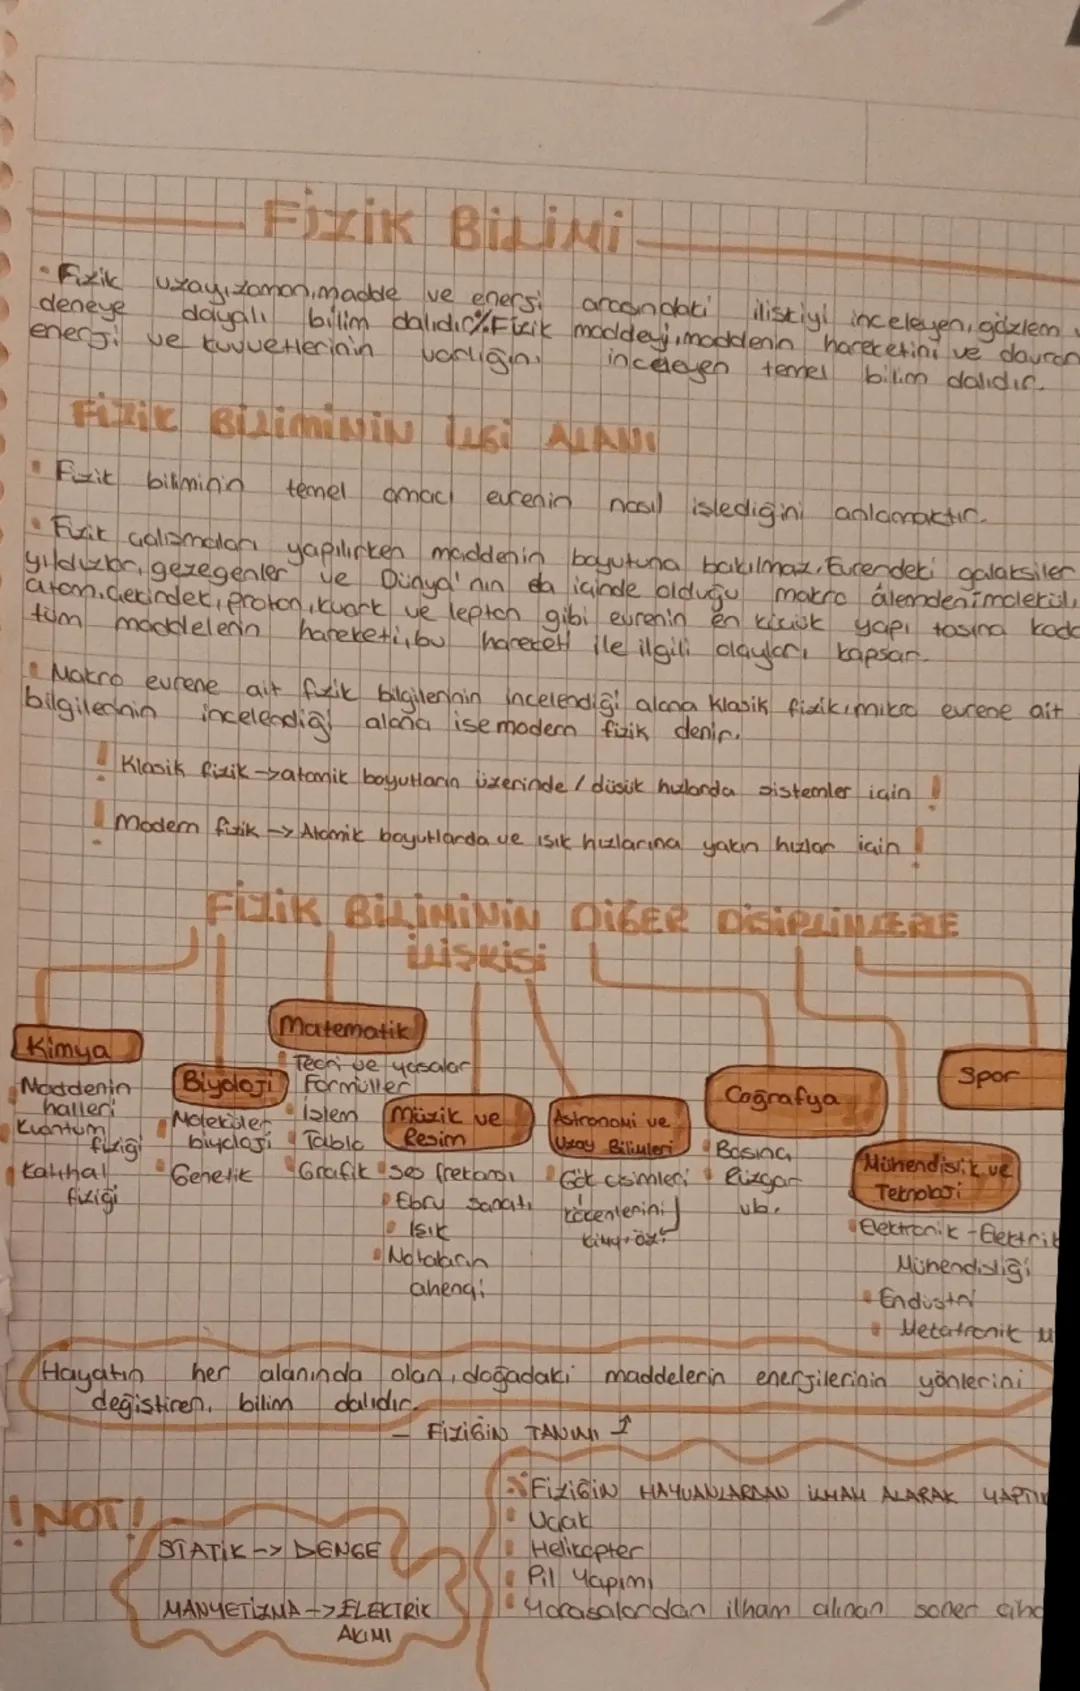 FİZİK BİLİMİ
Fizik uzayı, zaman, madde ve enerji arasındaki ilişkiyi inceleyen, gözlem
deneye dayalı bilim dalıdır. Fizik maddeyi, maddenin hareketini ve davran
enerji ve kuvvetlerinin varlığını inceleyen temel bilim dalıdır.
FİZİK BİLİMİNİN İLGİ ALANI
Fizik biliminin temel amacı evrenin nasıl işlediğini anlamaktır.
Fizik çalışmaları yapılırken maddenin boyutuna bakılmaz. Evrendeki galaksiler
yıldızlar, gezegenler ve Dünya'nın da içinde olduğu makro âlemden, molekül,
atom, çekirdek, proton, kuark ve lepton gibi evrenin en küçük yapı taşına kada
tüm maddelerin hareketi, bu hareket ile ilgili olayları kapsar.
Makro evrene ait fizik bilgilerinin incelendiği alana klasik fizik, mikro evrene ait
bilgilerinin incelendiği alana ise modern fizik denir.
! Klasik fizik → atomik boyutların üzerinde / düşük hızlarda sistemler için !
! Modern fizik → Atomik boyutlarda ve ışık hızlarına yakın hızlar için !
FİZİK BİLİMİNİN DİĞER DİSİPLİNLERLE
İLİŞKİSİ
Kimya
Maddenin
halleri
Kuantum
fiziği
Katıhal
fiziği
Biyoloji
Moleküler
biyoloji
Genetik
Matematik
Teori ve yasalar
Formüller
İşlem
Tablo
Grafik
Müzik ve
Resim
Ses frekansı
Ebru sanatı
Işık
Notaların
ahengi
Astronomi ve
Uzay Bilimleri
Gök cisimleri
kökenlerini
Coğrafya
Basınç
Rüzgar
vb.
Mühendislik ve
Teknoloji
Elektronik - Elektrik
Mühendisliği
Endüstri
Metatronik M
Spor
Hayatın her alanında olan, doğadaki maddelerin enerjilerinin yönlerini
değiştiren, bilim dalıdır.
— FİZİĞİN TANIMI ↑
! NOT !
STATİK → DENGE
MANYETİZMA → ELEKTRİK
AKIMI
FİZİĞİN HAYVANLARDAN İLHAM ALARAK YAPTIK
Uçak
Helikopter
Pil Yapımı
Yarasalardan ilham alınan soner ciha